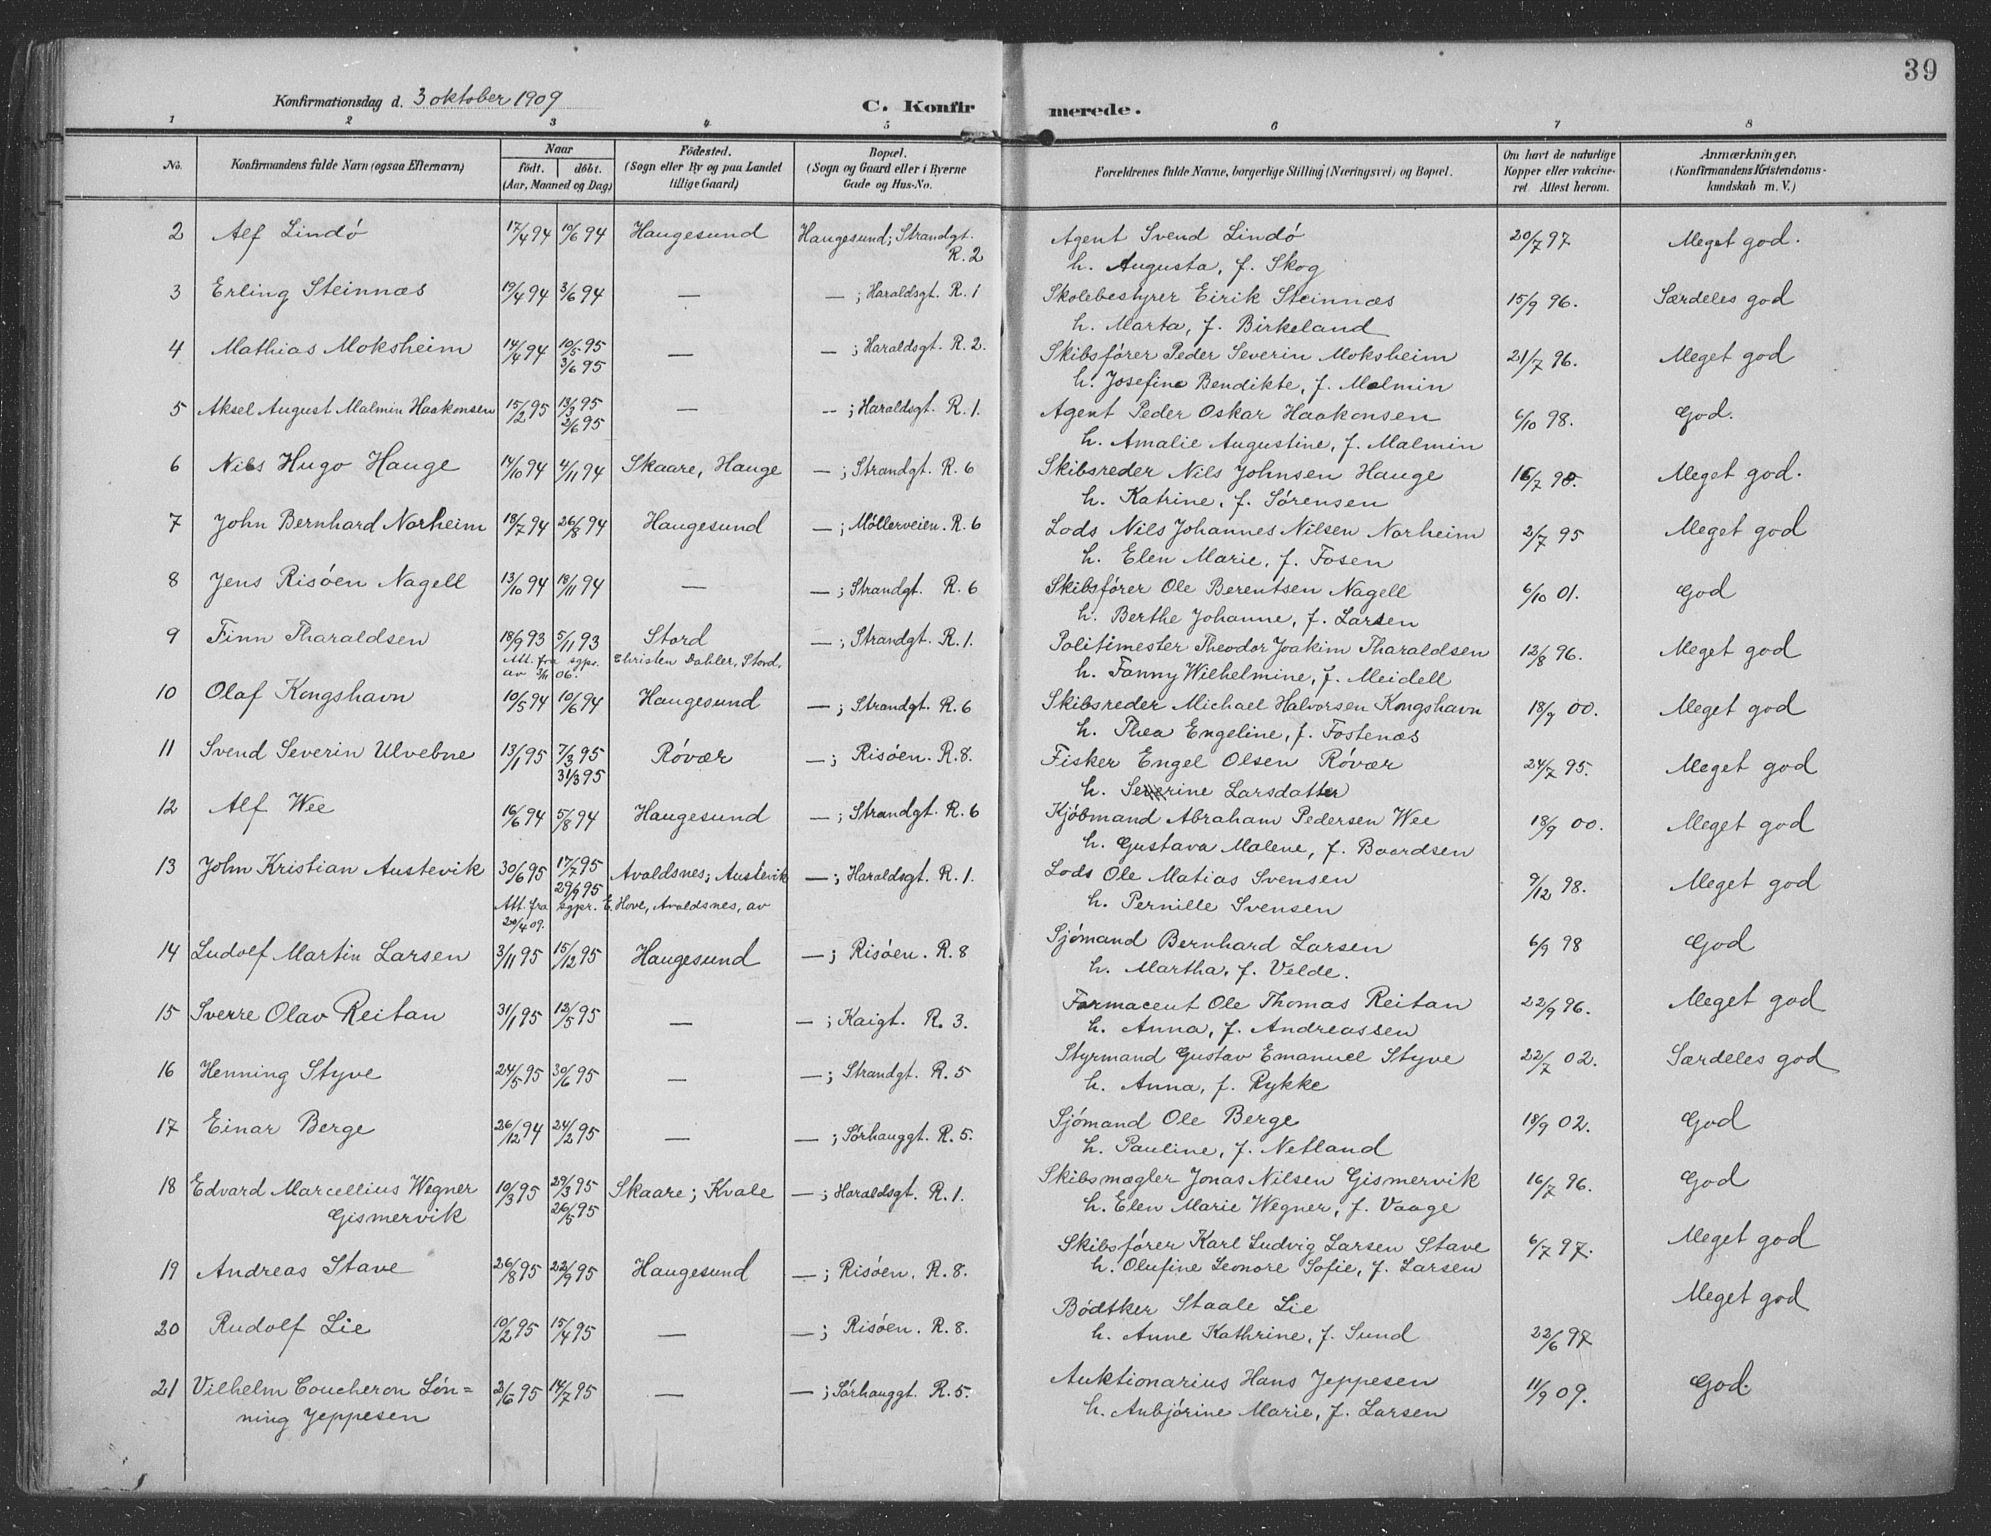 39
Konfirmationsdag d. 3 oktober 1909 C. Konfirmerede.
1 2 3 4 5 6 7 8
No. Konfirmandens fulde Navn (ogsaa Efternavn) Naar født. døbt. (Aar, Maaned og Dag) Fødested. (Sogn eller By og paa Landet tillige Gaard) Bopæl. (Sogn og Gaard eller i Byerne Gade og Hus-No. Forældrenes fulde Navne, borgerlige Stilling (Næringsvei) og Bopæl. Om havt de naturlige Kopper eller vakcineret Attest herom. Anmærkninger, (Konfirmandens Kristendomskundskab m. V.)
2 Alf Lindö 17/4 94 10/6 94 Haugesund Haugesund; Strandgt. R. 2 Agent Svend Lindö 20/7 97 Meget god.
h. Augusta, f. Skog
3 Erling Steinnæs 19/4 94 3/6 94 — — ; Haraldsgt. R. 1 Skolebestyrer Eirik Steinnæs 15/9 96. Særdeles god
h. Marta, f. Birkeland
4 Mathias Moksheim 14/4 94 10/5 95 3/6 95 — — ; Haraldsgt. R. 2. Skibsfører Peder Severin Moksheim 21/7 96. Meget god
h. Josefine Bendikte, f. Malmin
5 Aksel August Malmin Haakonsen 15/2 95 13/3 95 2/6 95 — — ; Haraldsgt. R. 1. Agent Peder Oskar Haakonsen 6/10 98. God.
h. Amalie Augustine, f. Malmin
6 Nils Hugo Hauge 14/10 94 4/11 94 Skaare, Hauge — ; Strandgt. R. 6 Skibsreder Nils Johnsen Hauge 16/7 98. Meget god.
h. Katrine, f. Sørensen
7 John Bernhard Norheim 18/7 94 26/8 94 Haugesund — ; Möllerveien. R. 6 Lods Nils Johannes Nilsen Norheim 2/7 95 Meget god
h. Elen Marie, f. Fosen
8 Jens Risöen Nagell 13/10 94 18/11 94 — — ; Strandgt. R. 6 Skibsfører Ole Berentsen Nagell 6/10 01. God
h. Berthe Johanne, f. Larsen
9 Finn Tharaldsen 18/9 93 5/11 93 Stord — ; Strandgt. R. 1. Politimester Theodor Joakim Tharaldsen 12/8 96. Meget god
Att. fra sgpr. Christen Dahler, Stord, h. Fanny Wilhelmine, f. Meidell
av 3/11 06.
10 Olaf Kongshavn 10/5 94 10/6 94 Haugesund — ; Strandgt. R. 6 Skibsreder Michael Halvorsen Kongshavn 18/9 00. Meget god
h. Thea Engeline, f. Fostenæs
11 Svend Severin Ulvebne 13/1 95 7/3 95 31/3 95 Rövær — ; Risöen. R. 8. Fisker Engel Olsen Rövær 24/7 95. Meget god
h. Severine Larsdatter
12 Alf Wee 16/6 94 5/8 94 Haugesund — ; Strandgt. R. 6 Kjöbmand Abraham Pedersen Wee 18/9 00. Meget god
h. Gustava Malene, f. Baardsen
13 John Kristian Austevik 30/6 95 17/7 95 29/9 95 Avaldsnes; Austevik — ; Haraldsgt. R. 1. Lods Ole Matias Svensen 9/12 98. Meget god
Att. fra sgpr. E. Hove, Avaldsnes, av h. Pernille Svensen
20/4 09.
14 Ludolf Martin Larsen 3/11 95 15/12 95 Haugesund — ; Risöen. R. 8 Sjömand Bernhard Larsen 6/9 98 God
h. Martha, f. Velde.
15 Sverre Olav Reitan 31/1 95 12/5 95 — — ; Kaigt. R. 3. Farmaceut Ole Thomas Reitan 22/9 96. Meget god
h. Anna, f. Andreassen
16 Henning Styve 24/5 95 30/6 95 — — ; Strandgt. R. 5 Styrmand Gustav Emanuel Styve 22/7 02. Særdeles god
h. Anna, f. Rykke
17 Einar Berge 26/12 94 24/2 95 — — ; Sörhauggt. R. 5. Sjömand Ole Berge 18/9 02. God
h. Pauline, f. Netland
18 Edvard Marcellius Wegner 10/3 95 29/3 95 26/5 95 Skaare; Kvale — ; Haraldsgt. R. 1. Skibsmægler Jonas Nilsen Gismervik 16/7 96. God
Gismervik h. Elen Marie Wegner, f. Vaage
19 Andreas Stave 26/8 95 22/9 95 Haugesund — ; Risöen. R. 8. Skibsfører Karl Ludvig Larsen Stave 6/7 97. Meget god
h. Olufine Leonore Sofie, f. Larsen
20 Rudolf Lie 10/2 95 15/4 95 — — ; Risöen. R. 8. Bödtker Staale Lie 22/6 97 Meget god
h. Anne Kathrine, f. Sund
21 Vilhelm Coucheron Lön= 2/6 95 14/7 95 — — ; Sörhauggt. R. 5. Auktionarius Hans Jeppesen 11/9 09. God.
ning Jeppesen h. Anbjörine Marie, f. Larsen